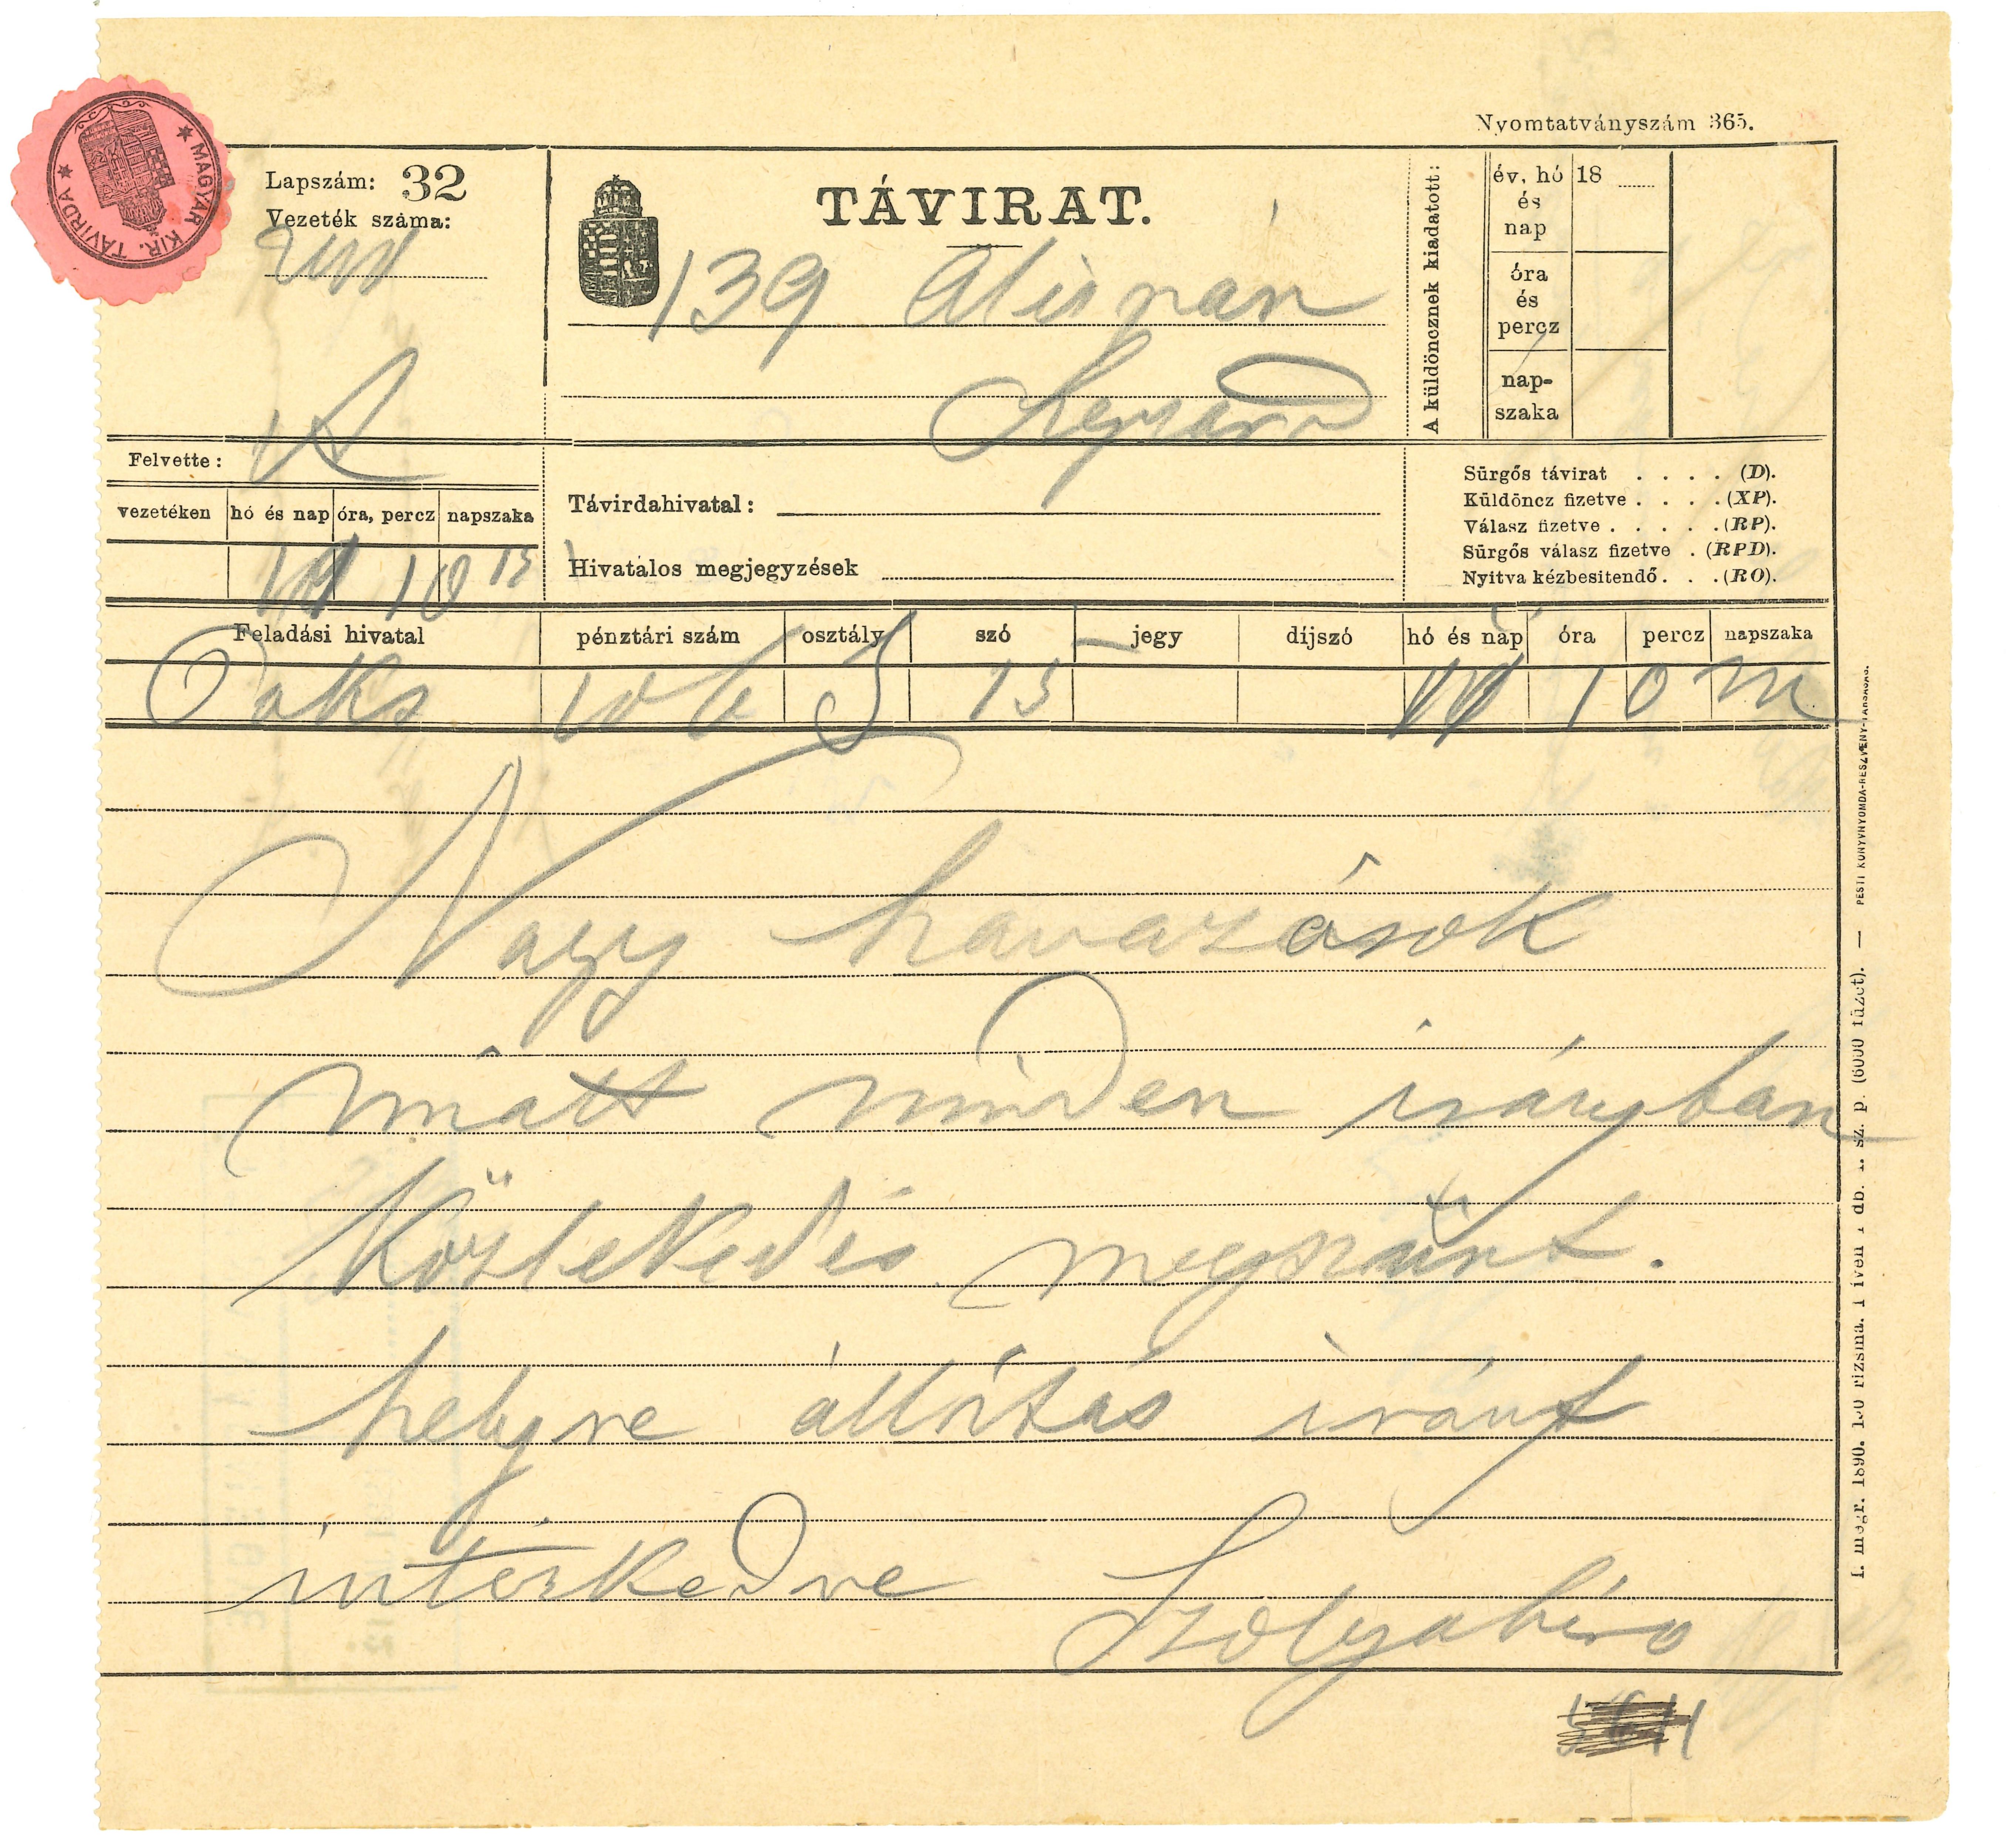 Nyomtatványszám 365.
MAGYAR KIR. TÁVIRDA
Lapszám: 32
Vezeték száma:
TÁVIRAT.
139 Alispán
Szegzárd
A küldöncznek kiadatott:
év, hó és nap 18
óra és percz
napszaka
Felvette:
vezetéken hó és nap óra, percz napszaka
10 15
Távirdahivatal:
Hivatalos megjegyzések
Sürgős távirat . . . . (D).
Küldöncz fizetve . . . . (XP).
Válasz fizetve . . . . . (RP).
Sürgős válasz fizetve . (RPD).
Nyitva kézbesitendő . . . (RO).
Feladási hivatal pénztári szám osztály szó jegy díjszó hó és nap óra percz napszaka
Paks 106 S 15 10 m
Nagy havazások
miatt minden irányban
Közlekedés megszünt.
helyre állítás iránt
intézkedve Szolgabíró
PESTI KÖNYVNYOMDA-RÉSZVÉNY-TÁRSASÁG.